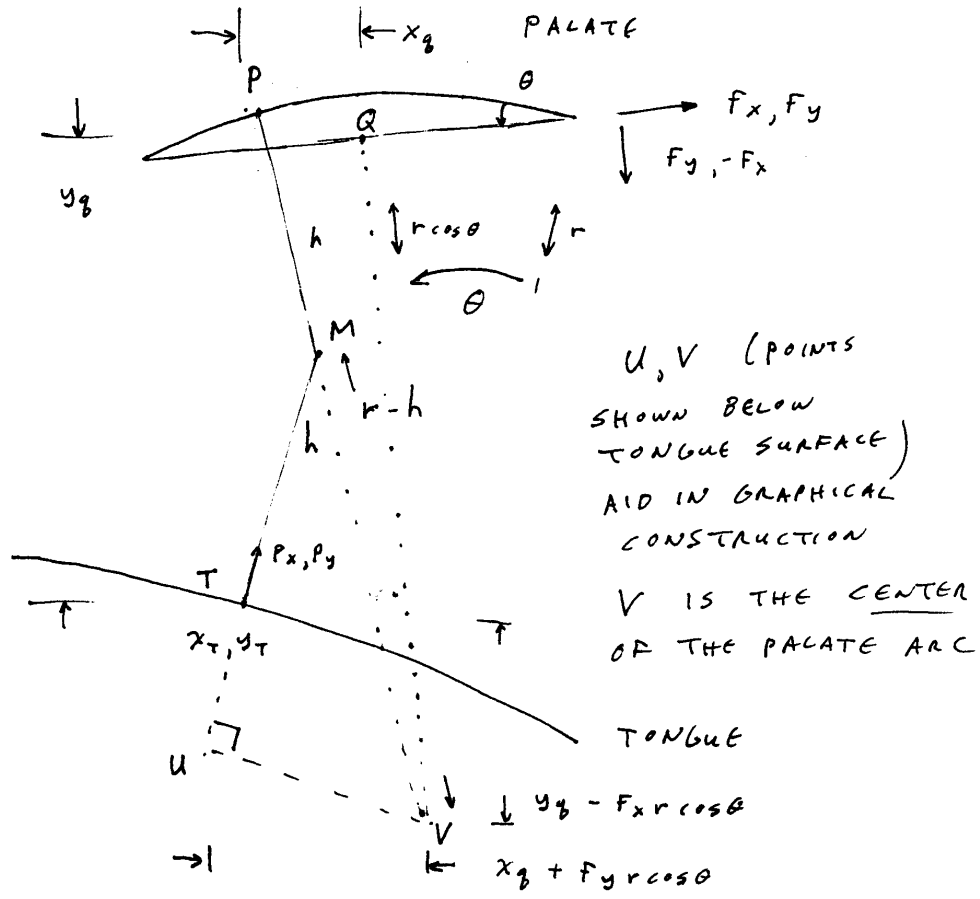 x_q PALATE
P θ
Q F_x, F_y
y_q F_y, -F_x
h r cos θ r
θ
M
r - h
h
U, V (POINTS
SHOWN BELOW
TONGUE SURFACE)
AID IN GRAPHICAL
CONSTRUCTION
V IS THE CENTER
OF THE PALATE ARC
T P_x, P_y
x_T, y_T
TONGUE
U
V y_q - F_x r cos θ
x_q + F_y r cos θ